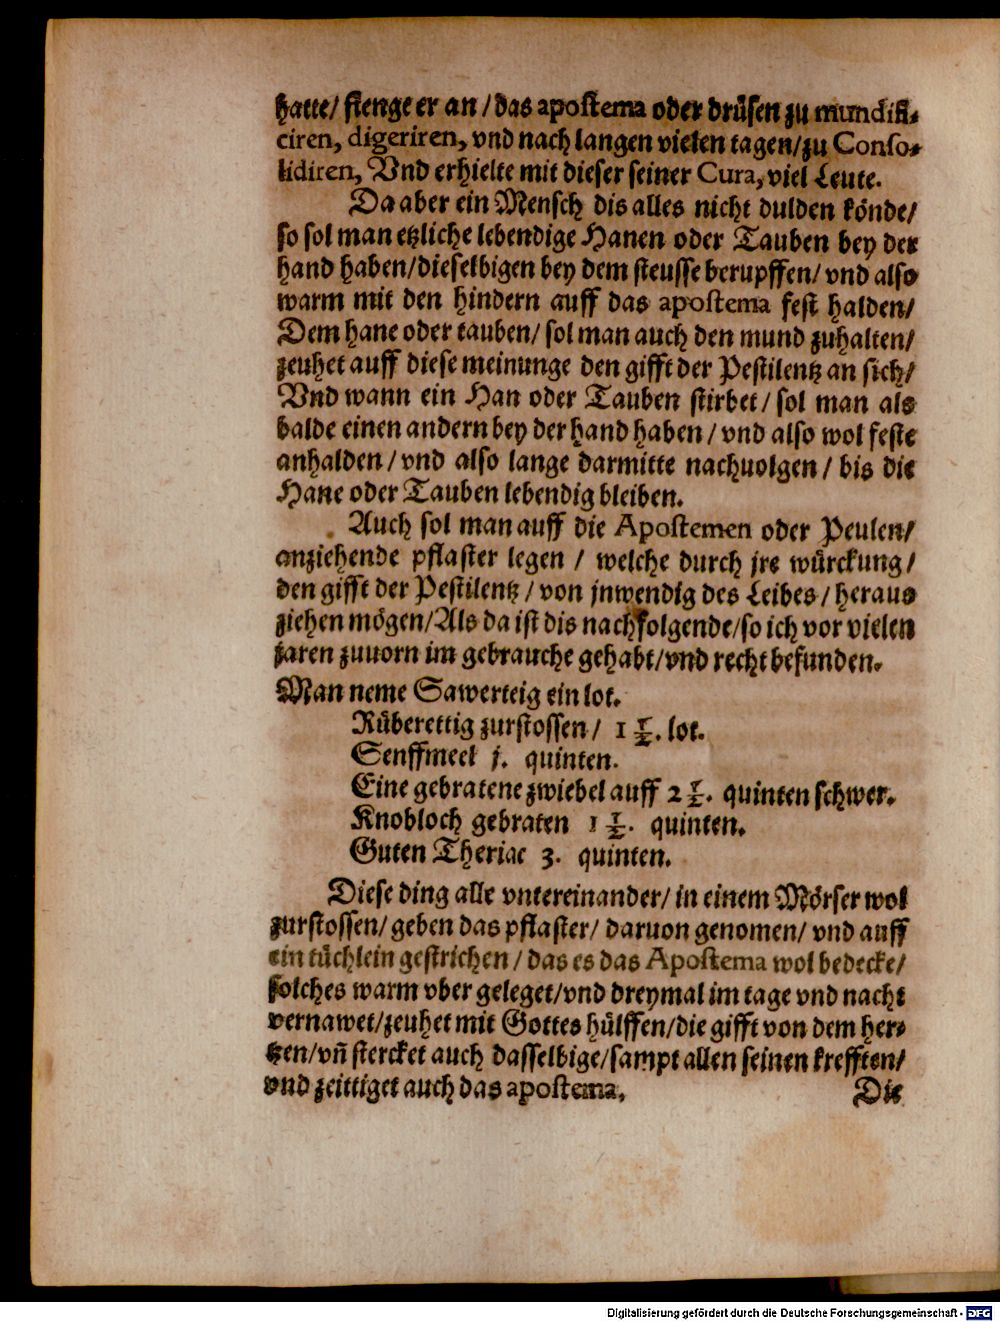 hatte/ fienge er an / das apostema oder drüsen zu mundifi-
ciren, digeriren, vnd nach langen vielen tagen/ zu Conso-
lidiren, Vnd erhielte mit dieser seiner Cura, viel Leute.
Da aber ein Mensch dis alles nicht dulden könde/
so sol man etzliche lebendige Hanen oder Tauben bey der
hand haben/ dieselbigen bey dem steusse berupffen/ vnd also
warm mit den hindern auff das apostema fest halden/
Dem hane oder tauben/ sol man auch den mund zuhalten/
zeuhet auff diese meinunge den gifft der Pestilentz an sich/
Vnd wann ein Han oder Tauben stirbet/ sol man als
balde einen andern bey der hand haben / vnd also wol feste
anhalden / vnd also lange darmitte nachuolgen / bis die
Hane oder Tauben lebendig bleiben.
Auch sol man auff die Apostemen oder Peulen/
anziehende pflaster legen / welche durch jre würckung/
den gifft der Pestilentz / von jnwendig des Leibes / heraus
ziehen mögen/ Als da ist dis nachfolgende/ so ich vor vielen
jaren zuuorn im gebrauche gehabt/ vnd recht befunden.
Man neme Sawerteig ein lot.
Rüberettig zurstossen / 1 ½. lot.
Senffmeel j. quinten.
Eine gebratene zwiebel auff 2 ½. quinten schwer.
Knobloch gebraten 1 ½. quinten.
Guten Theriac 3. quinten.
Diese ding alle vntereinander/ in einem Mörser wol
zurstossen/ geben das pflaster/ daruon genomen/ vnd auff
ein tüchlein gestrichen / das es das Apostema wol bedecke/
solches warm vber geleget/ vnd dreymal im tage vnd nacht
vernawet/ zeuhet mit Gottes hülffen/ die gifft von dem her-
tzen/ vñ stercket auch dasselbige/ sampt allen seinen krefften/
vnd zeittiget auch das apostema.
Die
Digitalisierung gefördert durch die Deutsche Forschungsgemeinschaft - DFG